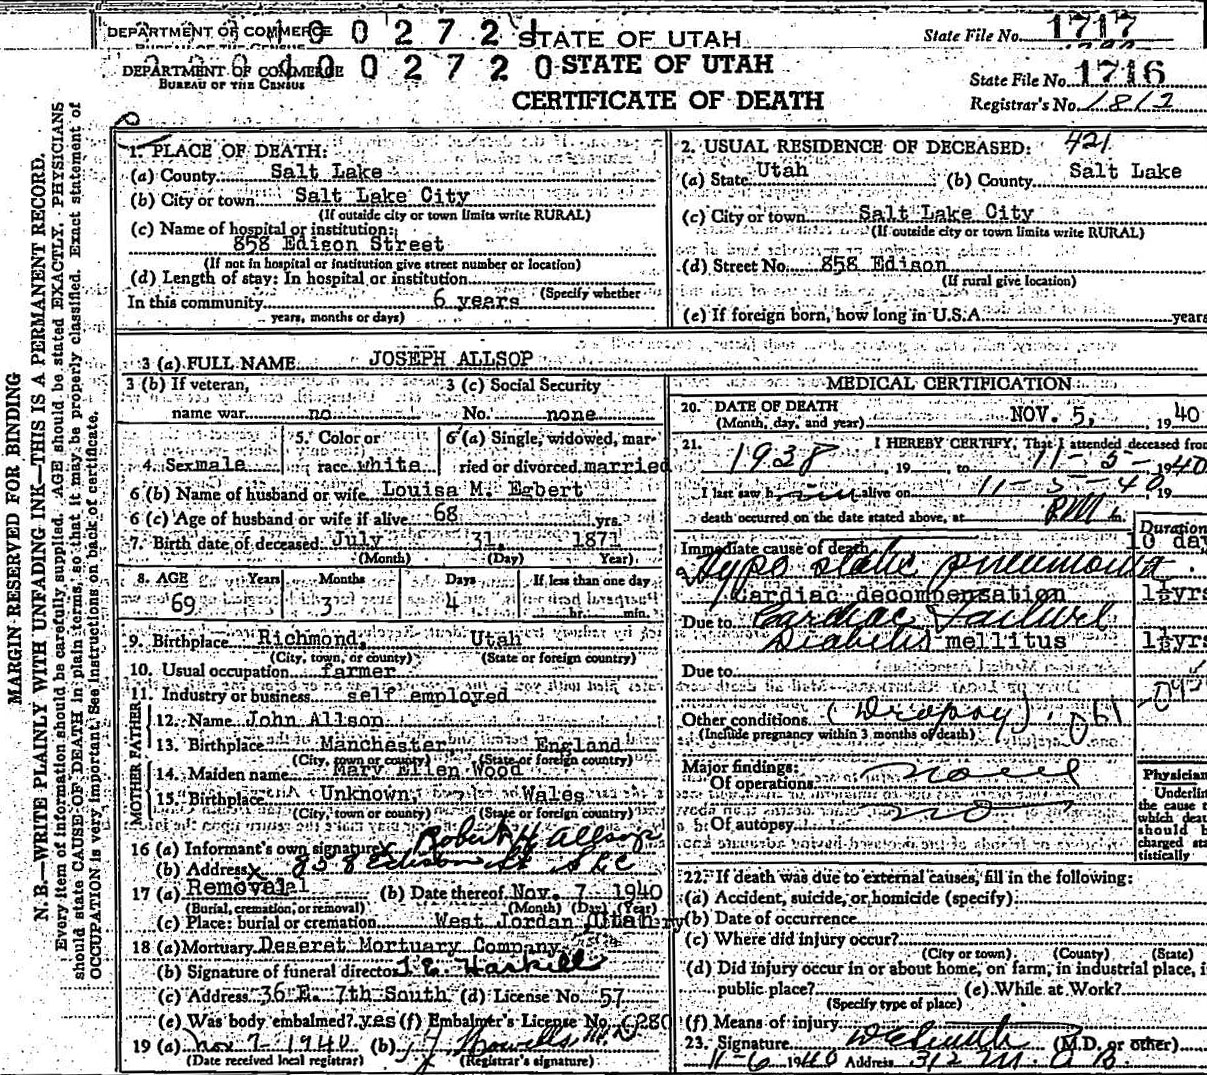 DEPARTMENT OF COMMERCE 0 0 2 7 2 1 STATE OF UTAH State File No. 1717
DEPARTMENT OF COMMERCE 0 0 2 7 2 0 STATE OF UTAH State File No. 1716
BUREAU OF THE CENSUS
CERTIFICATE OF DEATH Registrar's No. 1812
MARGIN RESERVED FOR BINDING
N. B.—WRITE PLAINLY WITH UNFADING INK—THIS IS A PERMANENT RECORD.
Every item of information should be carefully supplied. AGE should be stated EXACTLY. PHYSICIANS
should state CAUSE OF DEATH in plain terms, so that it may be properly classified. Exact statement of
OCCUPATION is very important. See instructions on back of certificate.
1. PLACE OF DEATH:
(a) County Salt Lake
(b) City or town Salt Lake City
(If outside city or town limits write RURAL)
(c) Name of hospital or institution:
858 Edison Street
(If not in hospital or institution give street number or location)
(d) Length of stay: In hospital or institution
(Specify whether
In this community 6 years
years, months or days)
2. USUAL RESIDENCE OF DECEASED: 421
(a) State Utah (b) County Salt Lake
(c) City or town Salt Lake City
(If outside city or town limits write RURAL)
(d) Street No. 858 Edison
(If rural give location)
(e) If foreign born, how long in U.S.A. years
3 (a) FULL NAME JOSEPH ALLSOP
3 (b) If veteran, 3 (c) Social Security
name war no No. none
4. Sex male 5. Color or race white 6 (a) Single, widowed, married or divorced married
6 (b) Name of husband or wife Louisa M. Egbert
6 (c) Age of husband or wife if alive 68 yrs.
7. Birth date of deceased July 31, 1871
(Month) (Day) Year)
8. AGE Years Months Days If less than one day
69 3 4 hr. min.
9. Birthplace Richmond, Utah
(City, town, or county) (State or foreign country)
10. Usual occupation farmer
11. Industry or business self employed
FATHER
12. Name John Allsop
13. Birthplace Manchester, England
(City, town or county) (State or foreign country)
MOTHER
14. Maiden name Mary Ellen Wood
15. Birthplace Unknown, Wales
(City, town or county) (State or foreign country)
16 (a) Informant's own signature Robert H Allsop
(b) Address 858 Edison St SLC
17 (a) Removal (b) Date thereof Nov. 7 1940
(Burial, cremation, or removal) (Month) (Day) (Year)
(c) Place: burial or cremation West Jordan, Utah
18 (a) Mortuary Deseret Mortuary Company
(b) Signature of funeral director J. E. Haskell
(c) Address 36 E. 7th South (d) License No. 57
(e) Was body embalmed? yes (f) Embalmer's License No. 280
19 (a) Nov 7 1940 (b)
(Date received local registrar) (Registrar's signature)
MEDICAL CERTIFICATION
20. DATE OF DEATH
(Month, day, and year) NOV. 5, 1940
21. I HEREBY CERTIFY, That I attended deceased from
1938, 19 , to 11-5-1940
I last saw him alive on 11-5-40, 19
death occurred on the date stated above, at PM m.
Duration
Immediate cause of death 10 day
Hypostatic pneumonia
Cardiac decompensation 1½yrs
Due to Cardiac Failure
Diabetes mellitus 1½yrs
Due to
Other conditions (Dropsy) 061
(Include pregnancy within 3 months of death)
Major findings:
Of operations none
Of autopsy no
Physician
Underlin
the cause t
which deat
should b
charged sta
tistically
22. If death was due to external causes, fill in the following:
(a) Accident, suicide, or homicide (specify)
(b) Date of occurrence
(c) Where did injury occur?
(City or town) (County) (State)
(d) Did injury occur in or about home, on farm, in industrial place, i
public place? (e) While at Work?
(Specify type of place)
(f) Means of injury
23. Signature (M.D. or other)
11-6 1940 Address 312 M. A. B.